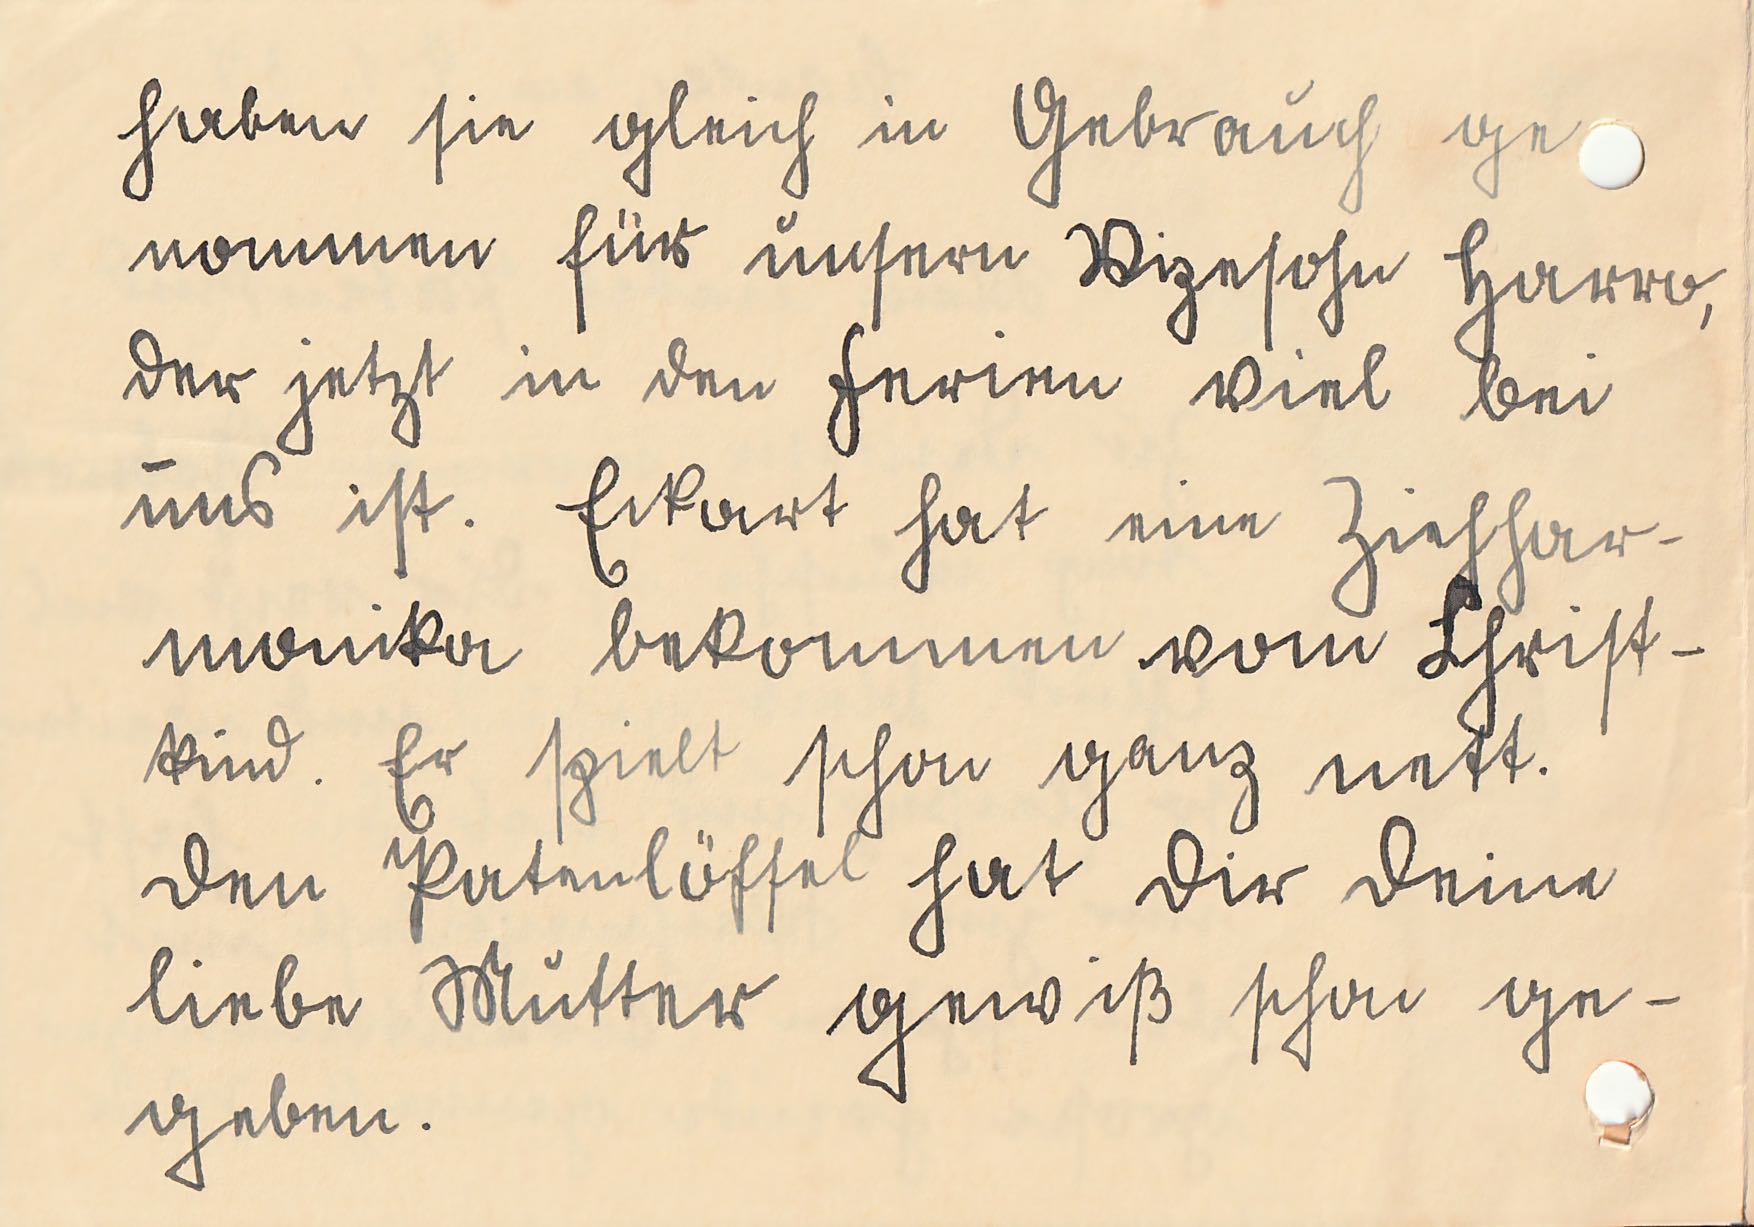 haben sie gleich in Gebrauch ge
nommen für unsern Vizesohn Harro,
der jetzt in den Ferien viel bei
uns ist. Eckart hat eine Ziehhar-
monika bekommen vom Christ-
kind. Er spielt schon ganz nett.
Den Patenlöffel hat Dir Deine
liebe Mutter gewiß schon ge-
geben.